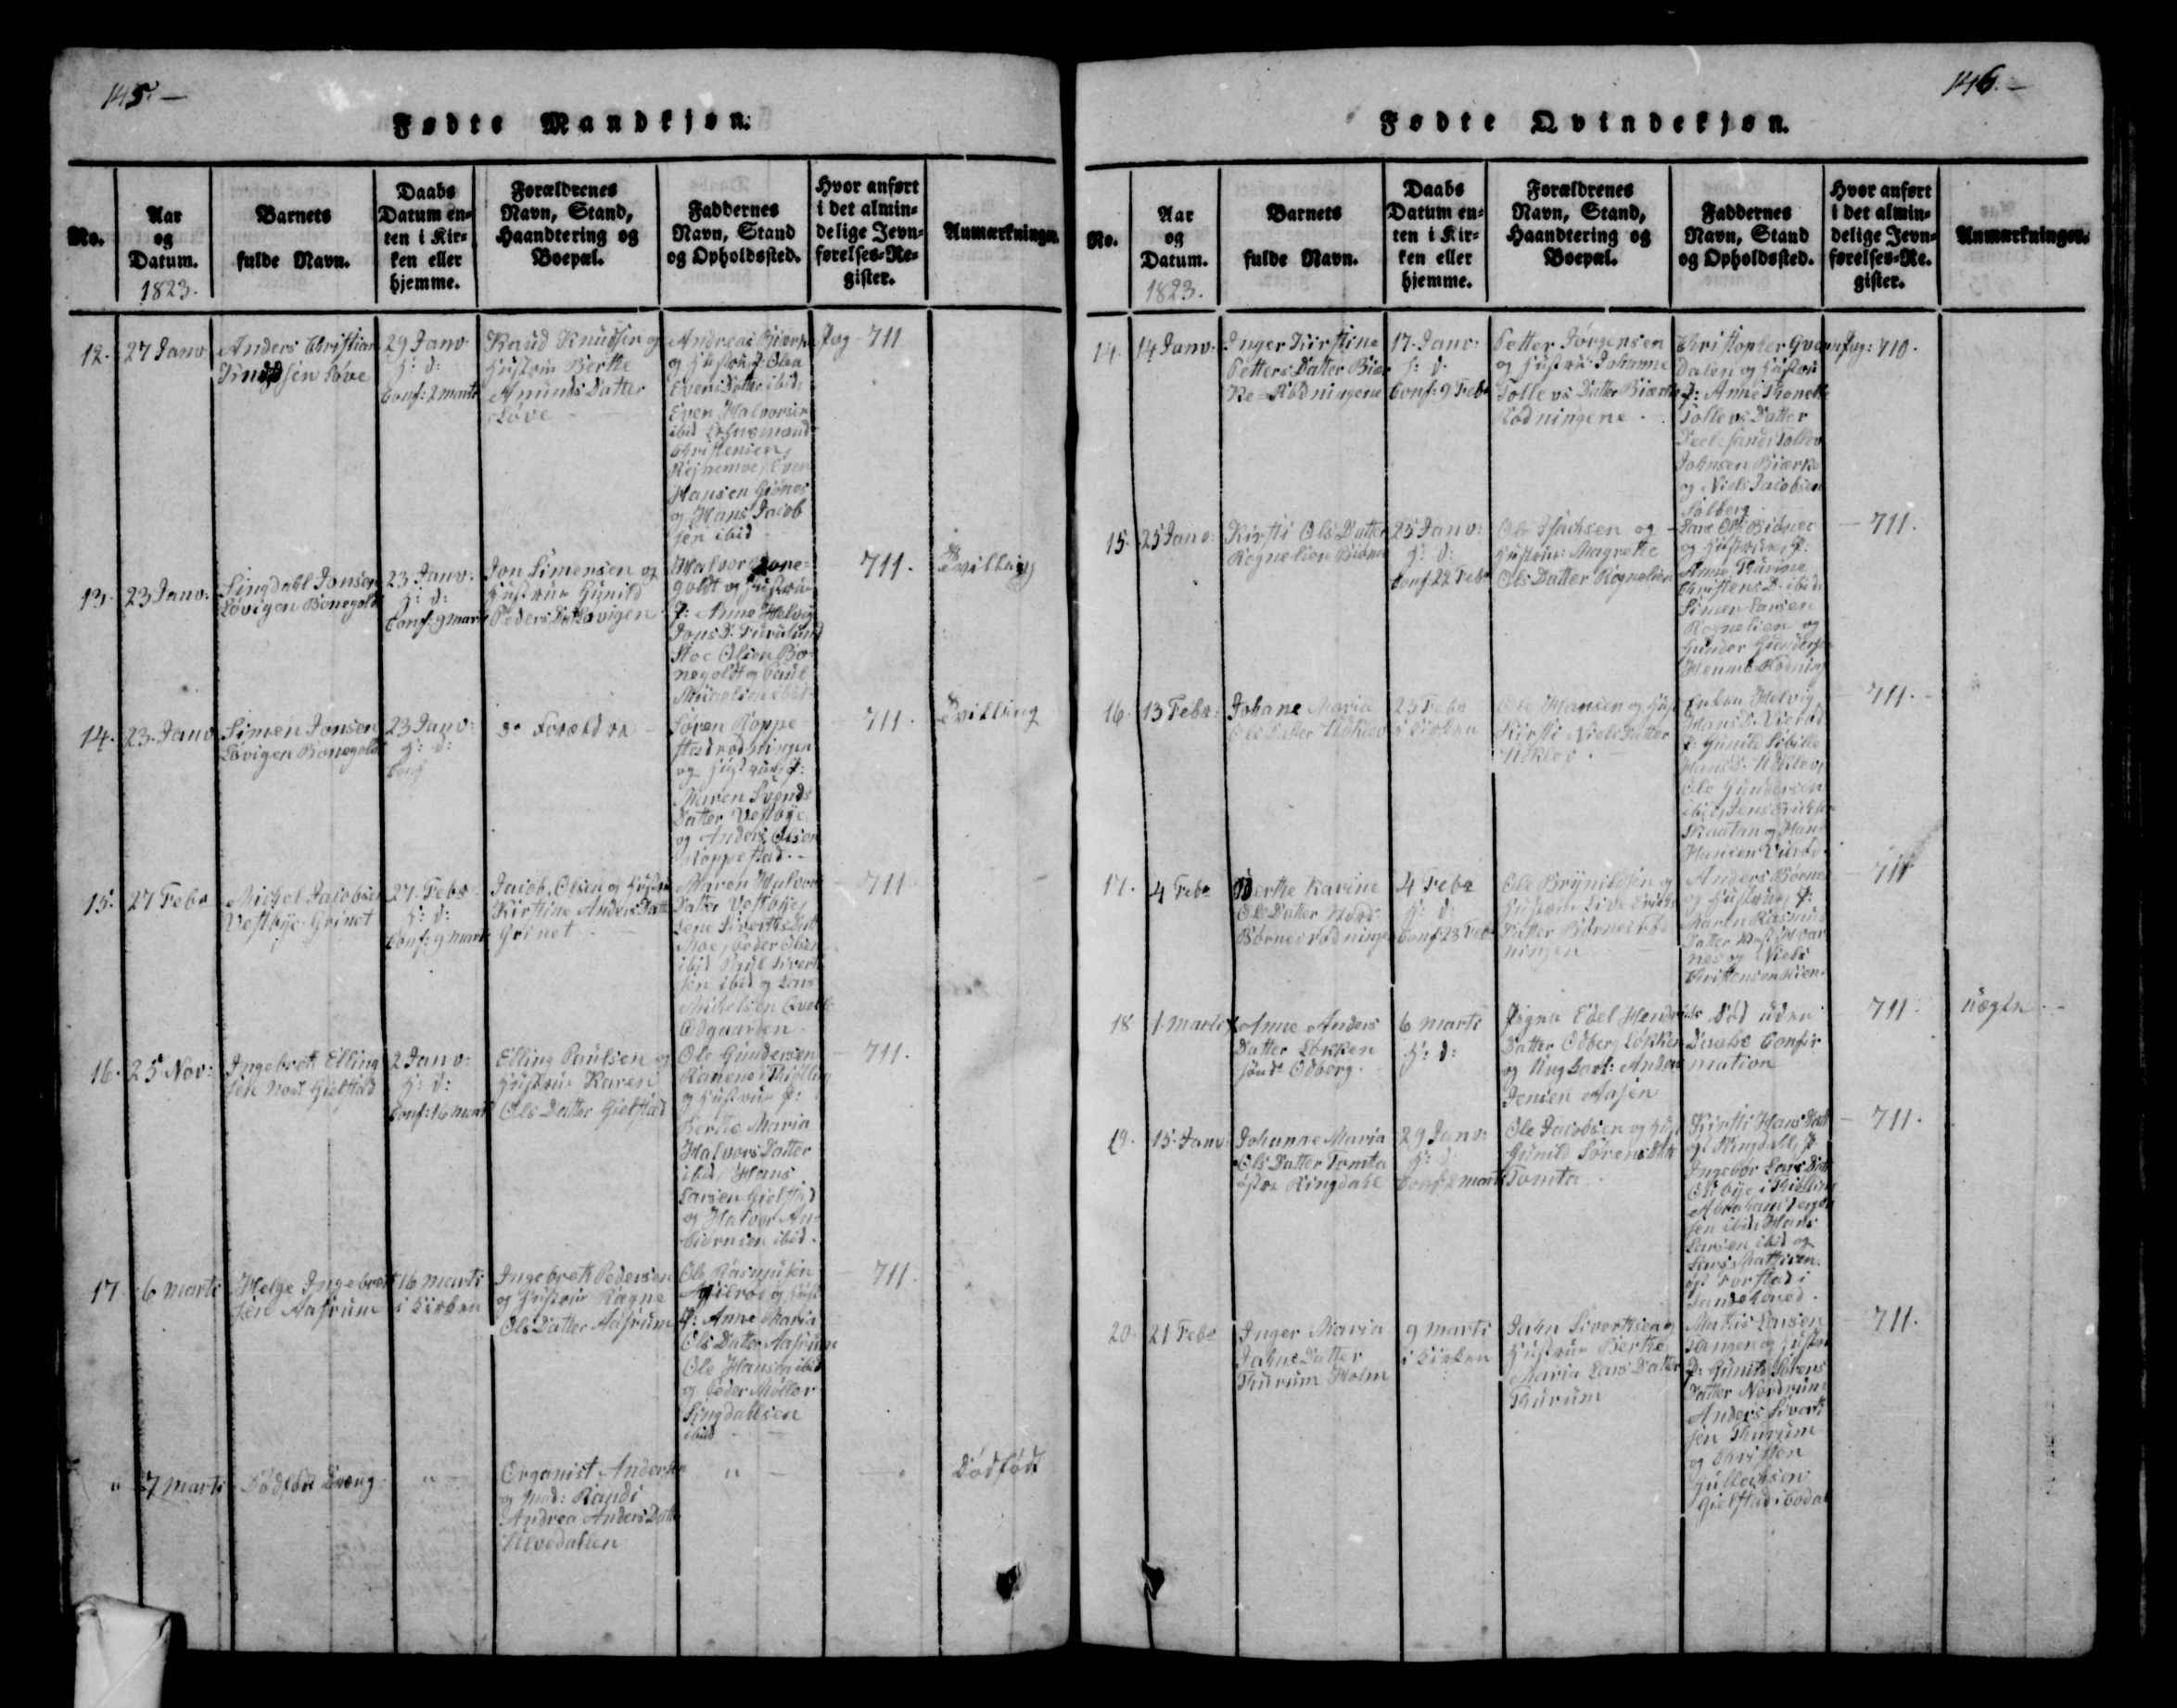 145.—
Fødte Mandkjøn.
No.
Aar
og
Datum.
1823.
Barnets
fulde Navn.
Daabs
Datum en=
ten i Kir=
ken eller
hjemme.
Forældrenes
Navn, Stand,
Haandtering og
Boepæl.
Faddernes
Navn, Stand
og Opholdssted.
Hvor anført
i det almin=
delige Jevn=
førelses=Re=
gister.
Anmærkninger.
12.
27 Janv:
Anders Christian
Knudsen Løve
29 Janv:
H: D:
Conf: 2 marti
Knud Knudsen og
Hustrue Berthe
Amunds Datter
Løve
Andreas Bierke
og Hustrue
Evens Datter ibid:
Even Halvorsen
ibid
Christensen
Even
Hansen Giønes
og Hans Jacob
sen ibid
Pag 711
13.
23 Janv:
Lingdahl Jonsen
Løvigen Bonegoldt
23 Janv:
H: D:
Conf: 9 marti
Jon Simensen og
Hustrue Gunild
Peders Dat Løvigen
Halvor Bone=
goldt og Hustrue
P: Anne Helvig
Jons D:
Olsen Bo=
negoldt og Poul
ibid
711.
Tvilling
14.
23. Janv:
Simen Jonsen
Løvigen Bonegoldt
23 Janv:
H: D:
Conf
do Foreldre
Søren Koppe
stadrødningen
og Hustrue P:
Maren Svends
Datter Vestbye
og Anders Olsen
Koppestad.
711.
Tvilling
15.
27 Febr
Michel Jacobsen
Vestbye Grinet
27. Febr
H: D:
Conf: 9 marti
Jacob Olsen og Hustrue
Kirstine Anders Datter
Grinet
Maren Halvors
Datter Vestbye,
Lene Siverts Datt
Peder Olsen
ibid Poul Sivert
sen ibid og Lars
Michelsen
Odgaarden
711
16.
25 Nov:
Ingebreth Elling
sen Nord Gielstad
2 Janv:
H: D:
Conf: 16 marti
Elling Paulsen og
Hustrue Karen
Ols Datter Gielstad
Ole Gundersen
Ranene i Thiølling
og Hustrue P:
Berthe Maria
Halvors Datter
ibid, Hans
Larsen Gielstad
og Halvor An=
biørnsen ibid.
711.
17.
6 marti
Helge Ingebreth
sen Aasrum
16 marti
i Kirken
Ingebreth Pedersen
og Hustrue Ragne
Ols Datter Aasrum
Ole Rasmusen
og Hust
P: Anne Maria
Ols Datter Aasrum
Ole Hansen ibid
og Peder Møller
Lingdahlsen
ibid
711.
"
7 marti
Dødfødt Dreng
"
Organist Andersen
og Mad: Randi
Andrea Anders Datt
Ulvedahlen
"
Dødfødt
146.—
Fødte Qvindekjøn.
No.
Aar
og
Datum.
1823.
Barnets
fulde Navn.
Daabs
Datum en=
ten i Kir=
ken eller
hjemme.
Forældrenes
Navn, Stand,
Haandtering og
Boepæl.
Faddernes
Navn, Stand
og Opholdssted.
Hvor anført
i det almin=
delige Jevn=
førelses=Re.
gister.
Anmærkninger.
14.
14 Janv:
Inger Kirstine
Petters Datter Biær
ke=Rødningene
17. Janv:
H: D:
Conf: 9 Febr
Petter Jørgensen
og Hustrue Johanne
Tollevs Datter Biærke
Rødningene.
Christopher Qvern
Dalen og Hustrue
P: Anne Thonette
Tollevs Datter
Tollev
Johnsen Biærke
og Niels Jacobsen
Solberg
Pag: 710.
15.
25 Janv:
Kirsti Ols Datter
Rognelien Biønes
25 Janv:
H: D:
Conf 22 Febr
Ole Isachsen og
Hustrue: Magrethe
Ols Datter Rognelien
Lars Ols: Biønes
og Hustrue, P:
Anne Karine
Christens D: ibid:
Simen Larsen
Rognelien og
Gunder Gunderse
711.
16.
13 Febr:
Johane Maria
Ols Datter Uhklev
23 Febr
i Kirken
Ole Hansen og Hust
Kirsti Niels Datter
Uhklev.
Enken Helvig
Hans D: Vierød
P: Gunild Sibille
Hans D: Uhklev,
Ole Gundersen
ibid, Jens
Skaatan og Hans
Hansen Vierød.
711.
17.
4 Febr
Berthe Karine
Ols Datter Nord
Børnesrødningen
4 Febr
H: D:
Conf: 23 Feb
Ole Brynildsen og
Hustrue Live Erichs
Datter Børnesrød
ningen
Anders Børne
og Hustrue, P:
Maren Rasmus
Datter
nes og Niels
Christensen
711
18
1. Marti
Anne Anders
Datter Løkken
sønd Odberg.
6 marti
H: D:
Pigen Edel Hendrichs
Datter Odberg Løkken
og Ung Karl: Anders
Jensen Aasen
Død uden
Daabs Confir
mation
711.
uægte
19.
15. Janv:
Johanne Maria
Ols Datter Tomta
østre Ringdahl
29 Janv:
H: D:
Conf: 2 marti
Ole Jacobsen og Hust
Gunild Sørens Datter
Tomta.
Kirsti Hans Datt
Ringdahl, P:
Ingebor Lars Datt
Østbye i Thiølling
Abraham
sen ibid, Hans
Larsen ibid og
Lars Mathisen
i
Sandehered.
711.
20.
21 Febr
Inger Maria
Jahns Datter
Thurum Holm
9 marti
i Kirken
Jahn Sivertsen og
Hustrue Berthe
Maria Lars Datter
Thurum
Mathis Larsen
Tangen og Hustrue
P: Gunild Sørens
Datter Nordrum
Anders Sivert
sen Thurum
og Christen
Gullichsen
Gielstad i Bodal
711.